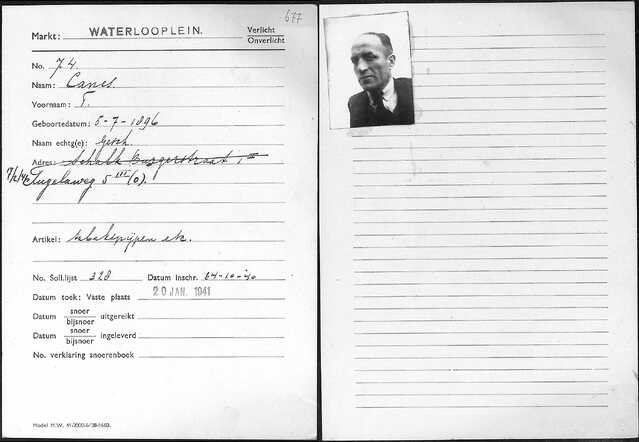 677
Markt: WATERLOOPLEIN. Verlicht
Onverlicht
No. 74
Naam: Canes.
Voornaam:
Geboortedatum: 5-7-1896
Naam echtg(e): Gesch.
Adres: Schalk Burgerstraat 1 III
Tugelaweg 5 III (o).
Artikel: tabakspijpen etc.
No. Soll.lijst 328 Datum Inschr. 24-10-'40
Datum toek: Vaste plaats 20 JAN. 1941
Datum snoer
bijsnoer uitgereikt
Datum snoer
bijsnoer ingeleverd
No. verklaring snoerenboek
Model M.W.